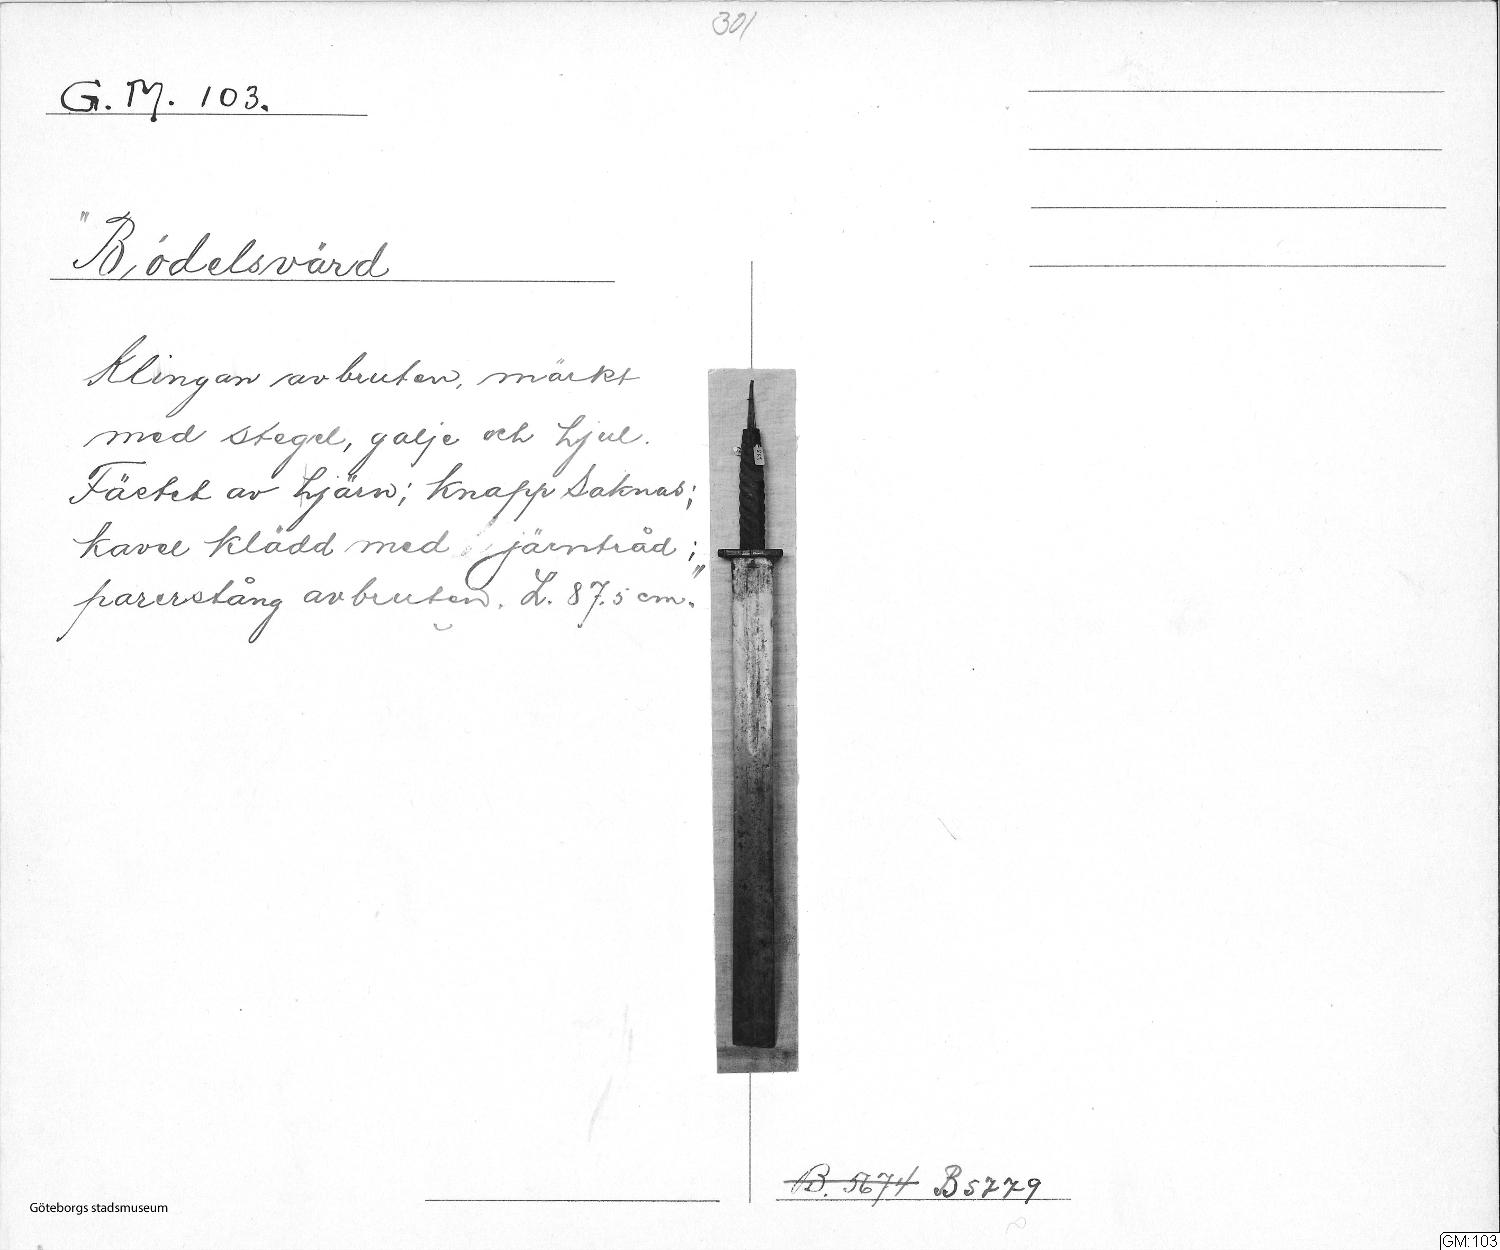 301
G. M. 103.
"Bödelsvärd
Klingan avbruten, märkt
med stegel, galje och hjul.
Fästet av hjärn; knapp saknas;
kavel klädd med järntråd;
parerstång avbruten. L. 87.5 cm."
B. 5674 B5779
Göteborgs stadsmuseum
GM:103